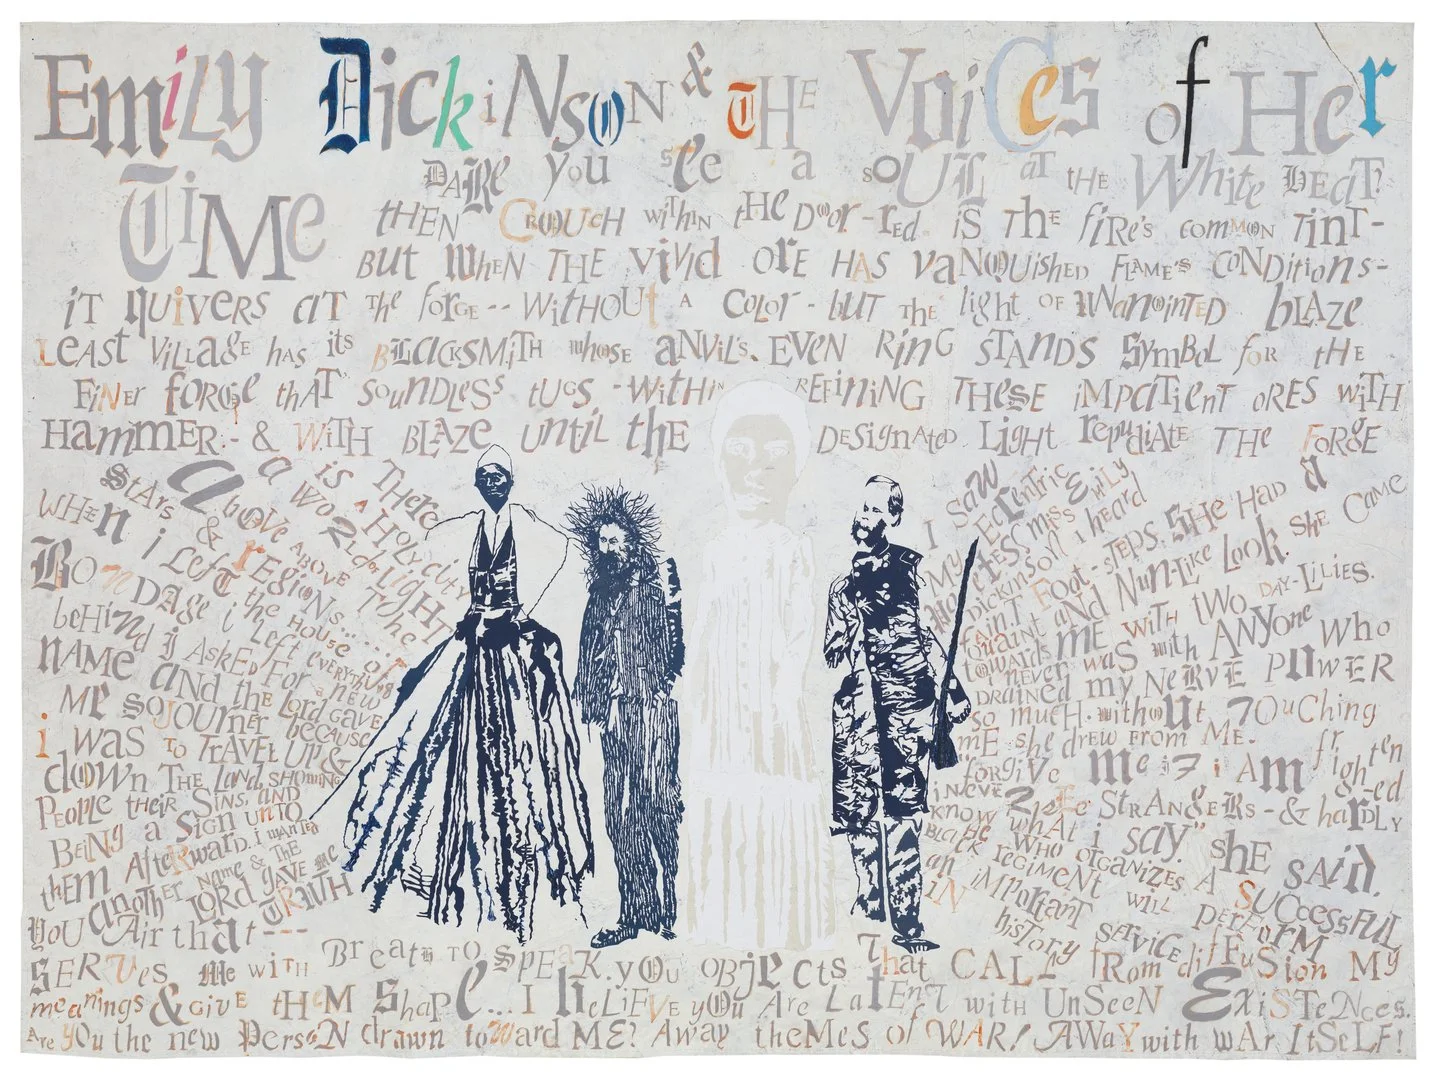 Emily Dickinson & THE Voices of Her
Time
DARE you see a soul at the White Heat?
then Crouch within the Door-red is the fire's common tint-
But when the vivid ore has vanquished Flame's conditions-
it quivers at the forge-- without a color - but the light of unanointed blaze
Least village has its Blacksmith whose anvil's Even Ring stands symbol for the
finer forge that soundless tugs - within Refining these impatient ores with
Hammer- & With Blaze until the Designated Light repudiate the Forge
Stars above & a wo is There
above a Holy City
regions Rich Light
when i left the House of
Bondage i left everything
behind I Asked For a new
name and the Lord gave
me sojourner because
i was to travel up &
down the land, showing
People their Sins, and
Being a Sign unto
them Afterward. i wanted
another name & the
Lord gave me
Truth
I saw
my Eccentric
Poetess Miss Emily
Dickinson i heard
foot-steps. She Had a
quaint and Nun-like look. she came
towards me with two day-lilies.
i never was with anyone who
drained my nerve power
so much. without touching
me she drew from me.
forgive me if i am frightened
i never see Strangers - & hardly
know what i say" she said.
he who organizes a successful
black regiment will perform
an important service
in history
You Air that---
Serves me with Breath to speak. you objects that call from diffusion my
meanings & give them shape... I believe you are latent with unseen Existences.
Are you the new Person drawn toward me? Away themes of war! Away with war itself!